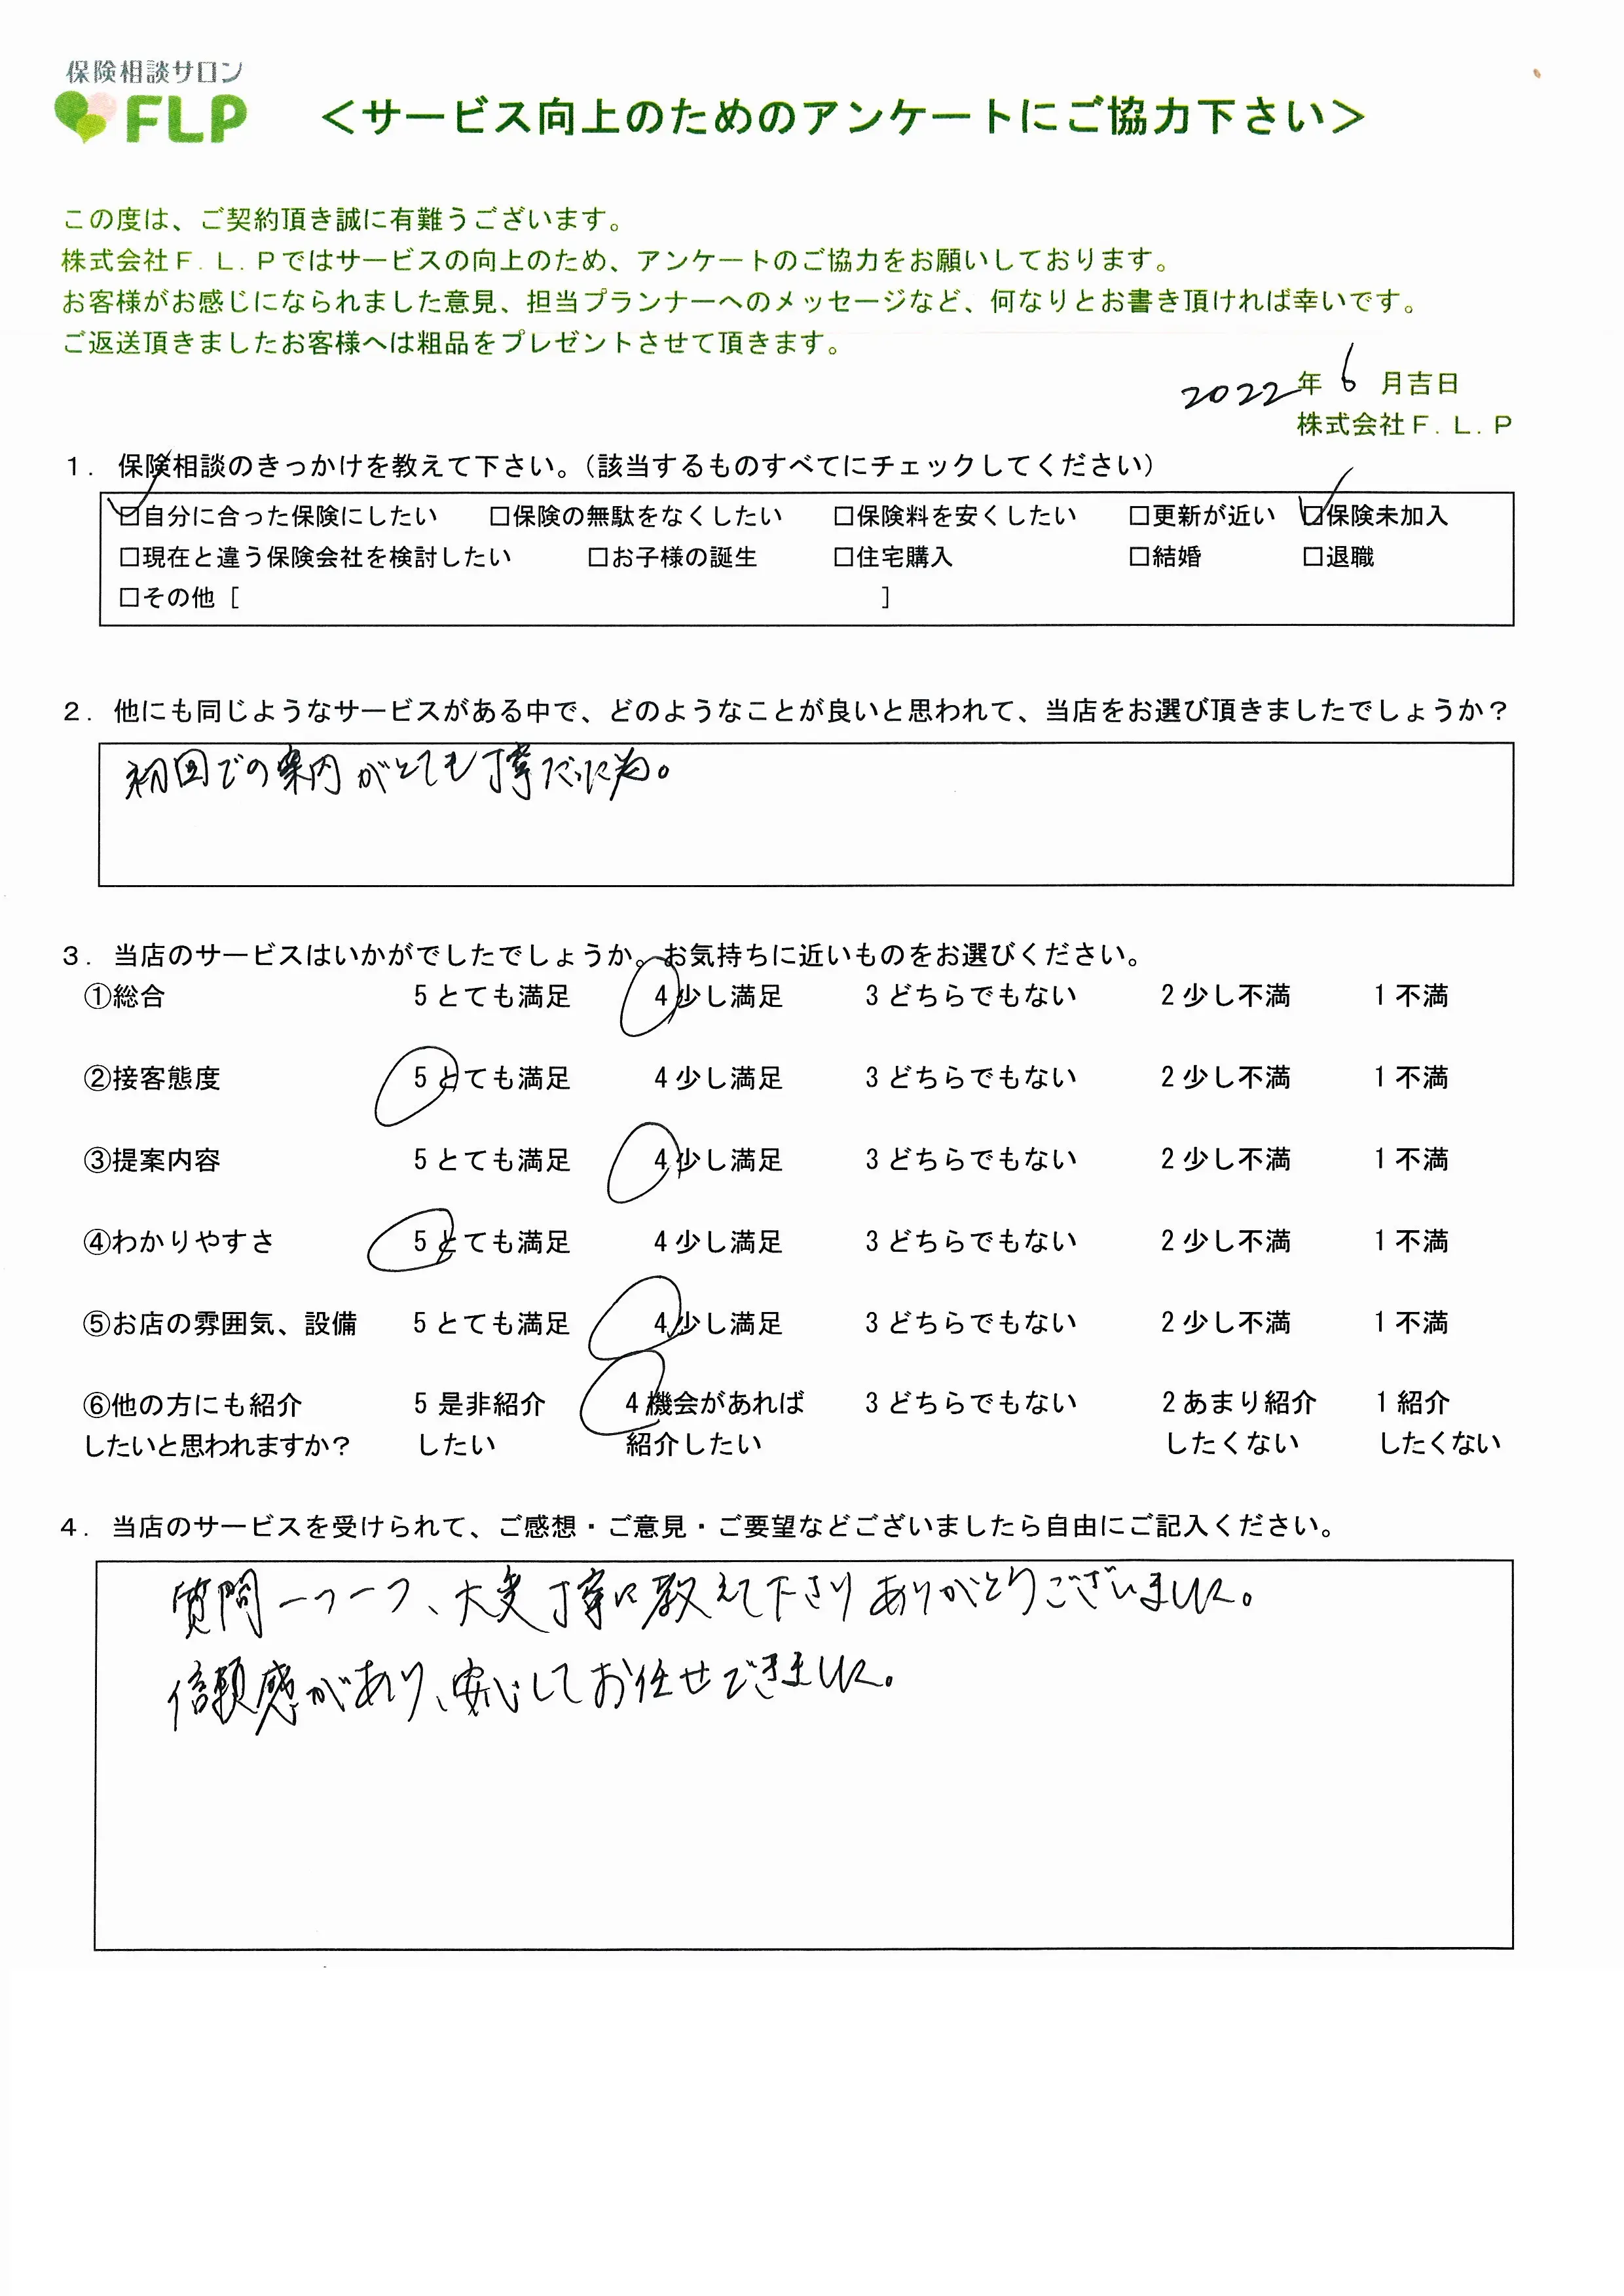 保険相談サロン
FLP
＜サービス向上のためのアンケートにご協力下さい＞
この度は、ご契約頂き誠に有難うございます。
株式会社Ｆ．Ｌ．Ｐではサービスの向上のため、アンケートのご協力をお願いしております。
お客様がお感じになられました意見、担当プランナーへのメッセージなど、何なりとお書き頂ければ幸いです。
ご返送頂きましたお客様へは粗品をプレゼントさせて頂きます。
2022年 6 月吉日
株式会社Ｆ．Ｌ．Ｐ
１．保険相談のきっかけを教えて下さい。（該当するものすべてにチェックしてください）
☑自分に合った保険にしたい □保険の無駄をなくしたい □保険料を安くしたい □更新が近い ☑保険未加入
□現在と違う保険会社を検討したい □お子様の誕生 □住宅購入 □結婚 □退職
□その他［ ］
２．他にも同じようなサービスがある中で、どのようなことが良いと思われて、当店をお選び頂きましたでしょうか？
初回での案内がとても丁寧だった為。
３．当店のサービスはいかがでしたでしょうか。お気持ちに近いものをお選びください。
①総合 5 とても満足 4 少し満足 3 どちらでもない 2 少し不満 1 不満
②接客態度 5 とても満足 4 少し満足 3 どちらでもない 2 少し不満 1 不満
③提案内容 5 とても満足 4 少し満足 3 どちらでもない 2 少し不満 1 不満
④わかりやすさ 5 とても満足 4 少し満足 3 どちらでもない 2 少し不満 1 不満
⑤お店の雰囲気、設備 5 とても満足 4 少し満足 3 どちらでもない 2 少し不満 1 不満
⑥他の方にも紹介 5 是非紹介 4 機会があれば 3 どちらでもない 2 あまり紹介 1 紹介
したいと思われますか？ したい 紹介したい したくない したくない
４．当店のサービスを受けられて、ご感想・ご意見・ご要望などございましたら自由にご記入ください。
質問一つ一つ、大変丁寧に教えて下さりありがとうございました。
信頼感があり、安心してお任せできました。